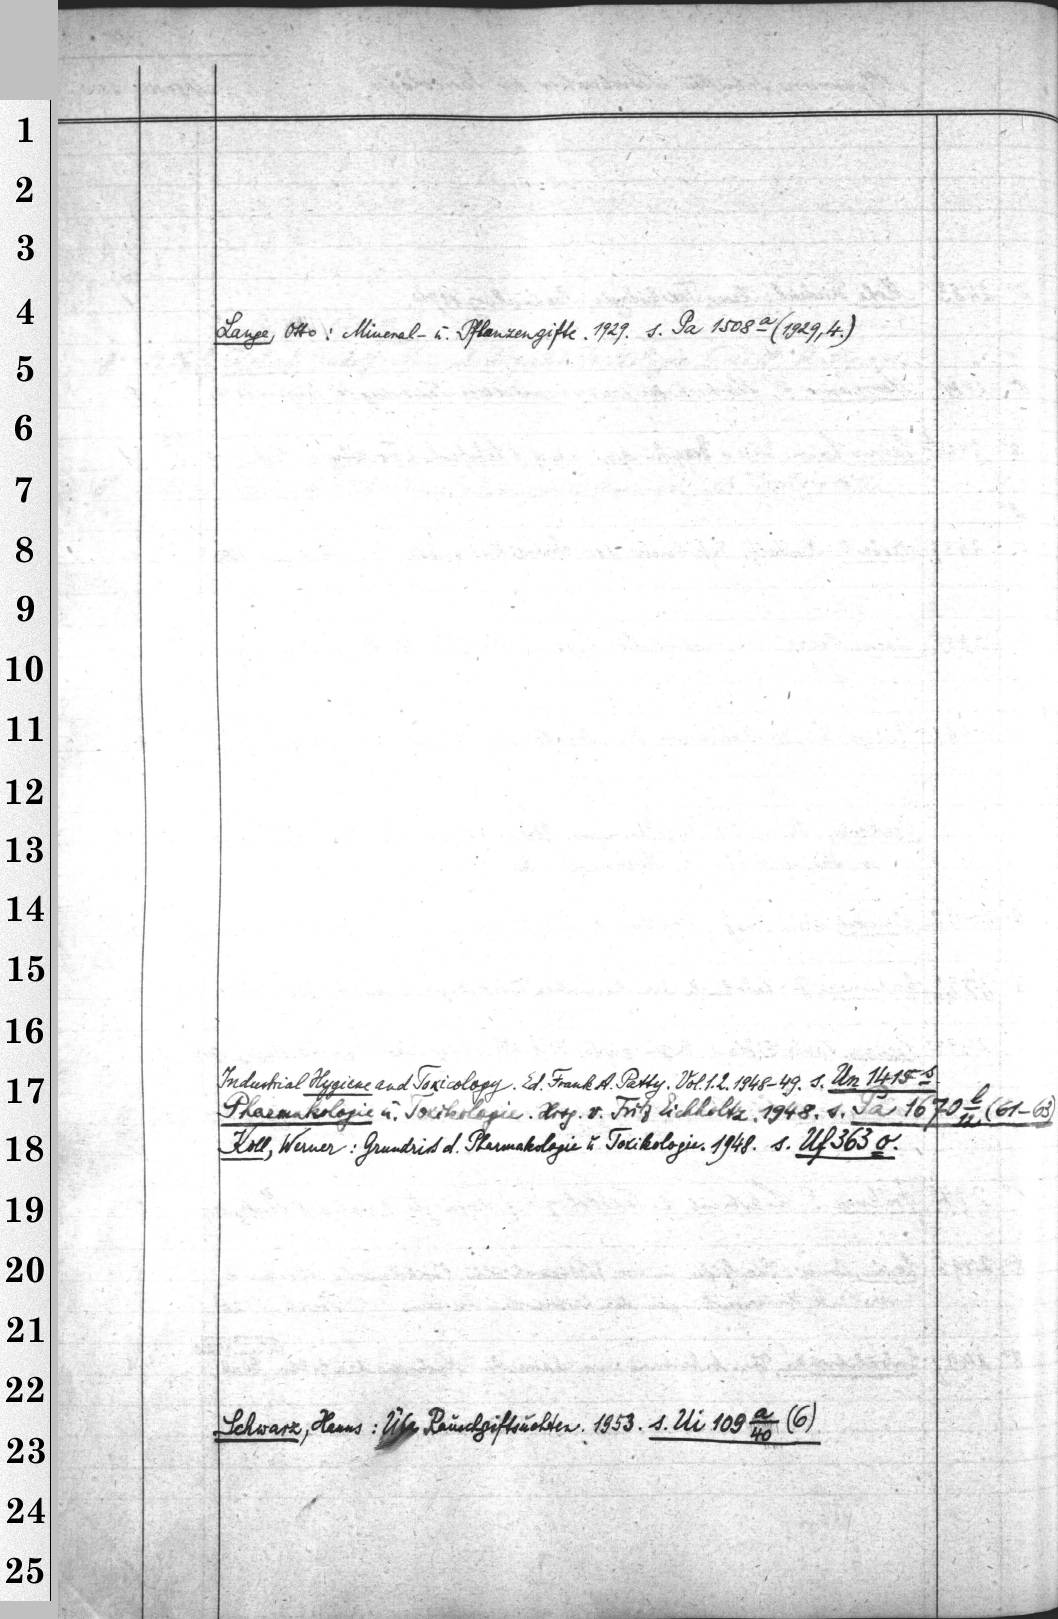 1
2
3
4
Lange, Otto: Mineral- u. Pflanzengifte. 1929. s. Pa 1508 a (1929, 4.)
5
6
7
8
9
10
11
12
13
14
15
16
Industrial Hygiene and Toxicology. Ed. Frank A. Patty. Vol. 1.2. 1948-49. s. Un 1415 s
17
Pharmakologie u. Toxikologie. Hrsg. v. Fritz Eichholtz. 1948. s. Pa 1670 (61-63)
18
Koll, Werner: Grundriß d. Pharmakologie u. Toxikologie. 1948. s. Uf 363 o.
19
20
21
22
Schwarz, Hanns: Rauschgiftsuchten. 1953. s. Ui 109 a/40 (6)
23
24
25